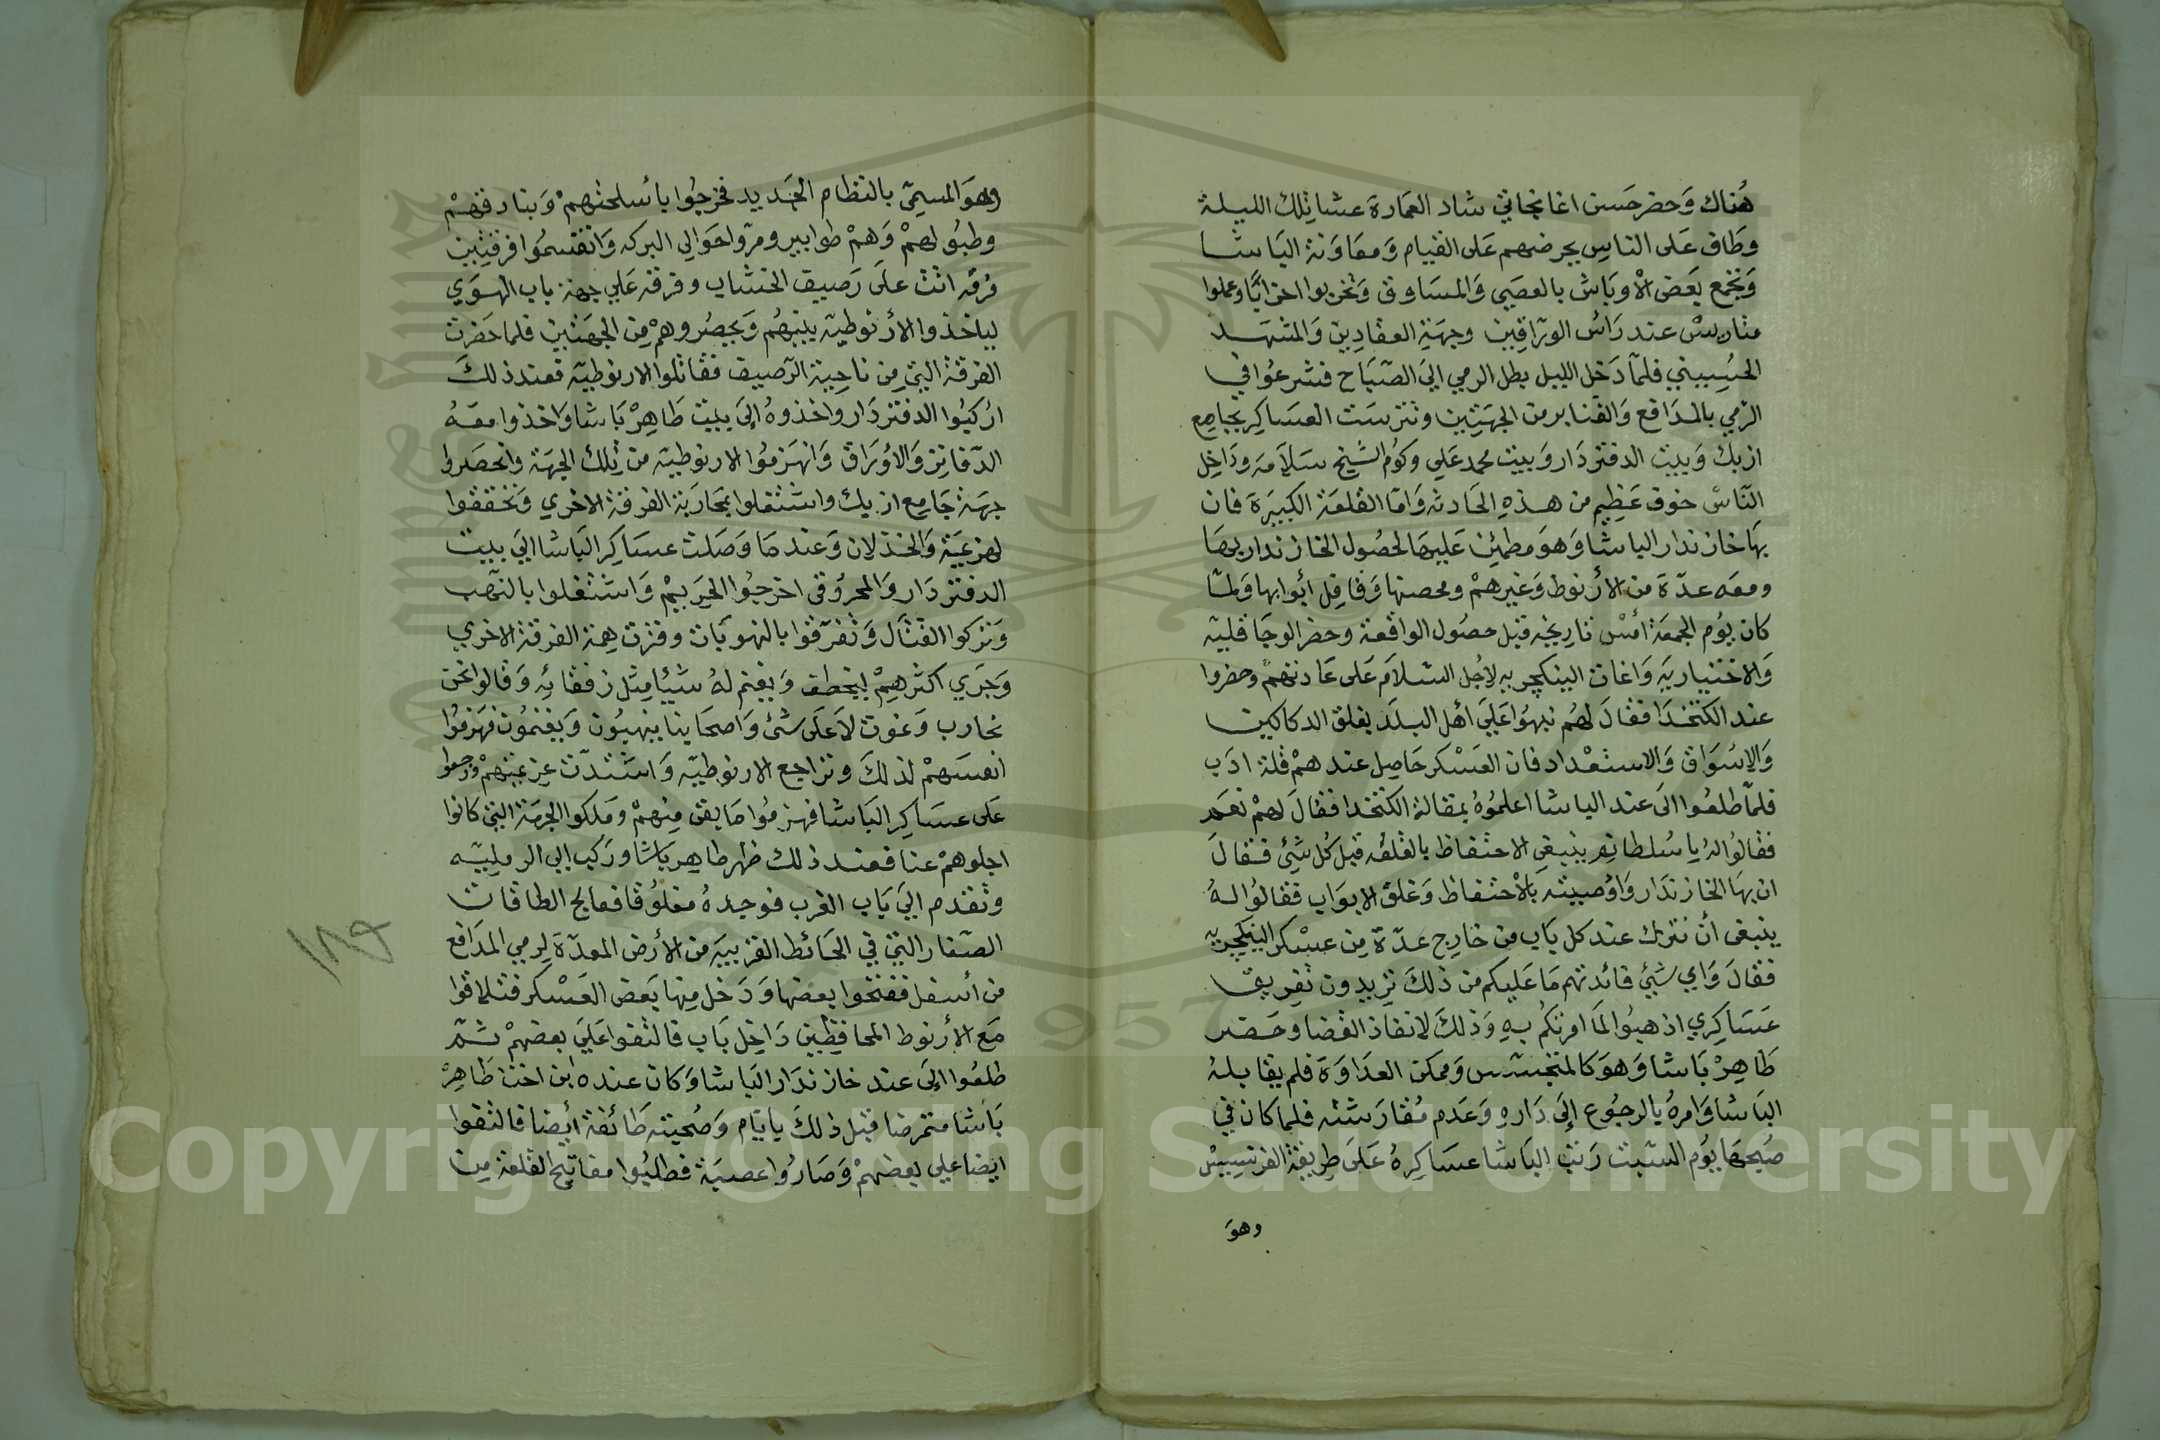 هُناك وَحضر حَسن اغا نجاتي شاد العمارة عشا تِلك الليلة
وطَاف عَلى الناسِ يحرضهم عَلى القيام وَمعَاوَنة البَاشا
وَتجمع بَعَض الأوبَاش بالعصَي وَالمسَاوق وَتحزبوا احزابًا وعملوا
متاريسْ عند رَاسُ الورّاقِين وجهَةِ العقادِين وَالمشهَد
الحُسِيني فلمّا دَخل الليل بطل الرمي الىَ الصّبَاح فشرعُوا في
الرمي بالمدَافع وَالقنابر من الجهَتِين وتترسَت العسَاكِر بجامِع
ازبك وَبيت الدفتر دَار وَبيت محمد عَلي وكوُم الشيخ سَلاَمه ودَاخِل
النّاسْ خوف عَظِيم من هذهِ الحَادثه وَامّا القلعَة الكبيَرة فان
بهَا خازندار الباشا وَهوَ مطمئِن عَليهَا لحصُول الخازندار بهَا
ومعَه عدّة من الأرُنوط وَغيرهمْ ومحصنها وَقافِل أبوابها وَلمّا
كان يوُم الجمعَة أمسْ تاريخه قبل حصُول الواقعة وحضر الوجَاقليّه
وَالاختياريّه وَاغات الينكچريه لاجُل السّلاَم عَلى عَادتهمْ وحضروا
عند الكتخدَا فقالَ لهُم نبهوُا عَليَ اهل البلدَ بغلق الدكاكين
وَالاسُوَاق وَالاستعْداد فان العَسْكر حَاصِل عندهمْ قلة ادَب
فلمّا طلعُوا الىَ عند الباشا اعلموُهُ بمقالة الكتخدا فقالَ لهمْ نعَم
فقالوُا لهُ يا سُلطانم ينبغي الاحتفاظ بالقلعَه قبل كل شئي فقالَ
ان بهَا الخازندَار وَاوُصيته بالاحتفاظ وَغلق الابوَاب فقالوُا لهُ
ينبغى أن نترك عند كل بَاب من خارج عدّة مِن عسْكر الينكچريه
فقالَ وَاي شئي فائدتهم مَا عَليكم من ذلكَ تريدون تفريق
عَسَاكِري اذهبُوا لمَا امرتكُم بهِ وَذلكَ لانفاذ القضا وحَضر
طَاهِرْ بَاشا وَهوَ كالمتجسّس وَممكن العدَاوَة فلم يقابلهُ
البَاشا وَامرهُ بالرجوُع إلىَ دَارِهِ وَعَدم مُقارَشته فلما كان في
صُبحهَا يوُم السّبت رَتب البَاشا عسَاكِرهُ عَلىَ طرِيقة الفرنسِيسْ
وهوَ
وهوَ المسمِىّ بالنظام الجَديد فخرجُوا بأسلحتهمْ وَبنادقهمْ
وطبوُلهمْ وَهمْ طوابير ومرّوا حَوالى البركه وَانقسموُا فرقتين
فرُقه اتت علىَ رَصيف الخشاب وفرقه عَلي جهة باب الهوَي
لياخذوا الأرنوطيّه بينهُم وَيحصُروهمْ مِن الجهَتين فلما حَضرت
الفرقة التي مِن ناحِية الرّصيف فقاتلوا الارنوطيّه فعند ذلكَ
ارُكبُوا الدفتردَار واخذوهُ إلىَ بيت طَاهِرْ بَاشا وَاخذوا معَهُ
الدّفاتِر وَالاوُرَاق وَانهزموُا الارنوطيّه من تِلك الجهَة وانحصَروا
جهَة جَامِع ازبك واشتغلوا بمحَارَبة الفرقة الاخري وَتحققوا
لهزيميَة وَالخذلان وَعند مَا وَصَلت عسَاكِر البَاشا اليَ بيت
الدفتردَار وَالمحرُوقي اخرجُوا الحَريمْ وَاشتغلوا بالنّهب
وَتركوا القتال وَتفرّقوا بالنهوبَات وفترت هِمة الفرقة الاخري
وَجرَي اكثرهِمْ ليخطف وَيغنم لهُ شيئا مِثل رفقائِه وَقالوا نحن
نحارب وَنموت لاَ عَلَى شئى وَاصحَابنا ينهبُون وَيغنمُون فهَزموُا
انفسَهمْ لذلكَ وتراجع الارنوطيّه وَاشتدّت عزيمتهمْ ورجعوا
عَلى عسَاكِر البَاشا فهزموُا مَا بقى مِنهمْ وملكوا الجهَة التي كانوا
اجلوهمْ عنا فعند ذلك ظهر طاهِر بَاشا ورَكب إلي الرميليّه
وتقدم اليَ بَاب العَزب فوجدهُ مغلوُقا فعالج الطاقات
الصّغار التي في الحَائط القريبَه من الأرض المعدّة لِرمي المدَافع
من أسفل ففتحوا بعضهَا وَدَخل مِنها بَعض العَسْكر فتلاقوا
مَع الأرنوط المحافِظين دَاخِل بَاب فالتقوا عَليَ بعضهمْ ثمّ
طلعُوا إلىَ عند خازندَار البَاشا وَكان عندهِ ابن اخت طَاهِرْ
بَاشا متمرضا قبل ذلكَ بايّام وَصُحبته طَائفة أيضا فالتقوا
ايضا علي بعضهمْ وَصَارُوا عصبَة فطلبُوا مفاتيح القلعَة مِن
١٨٩
Copyright © King Saud University
1957